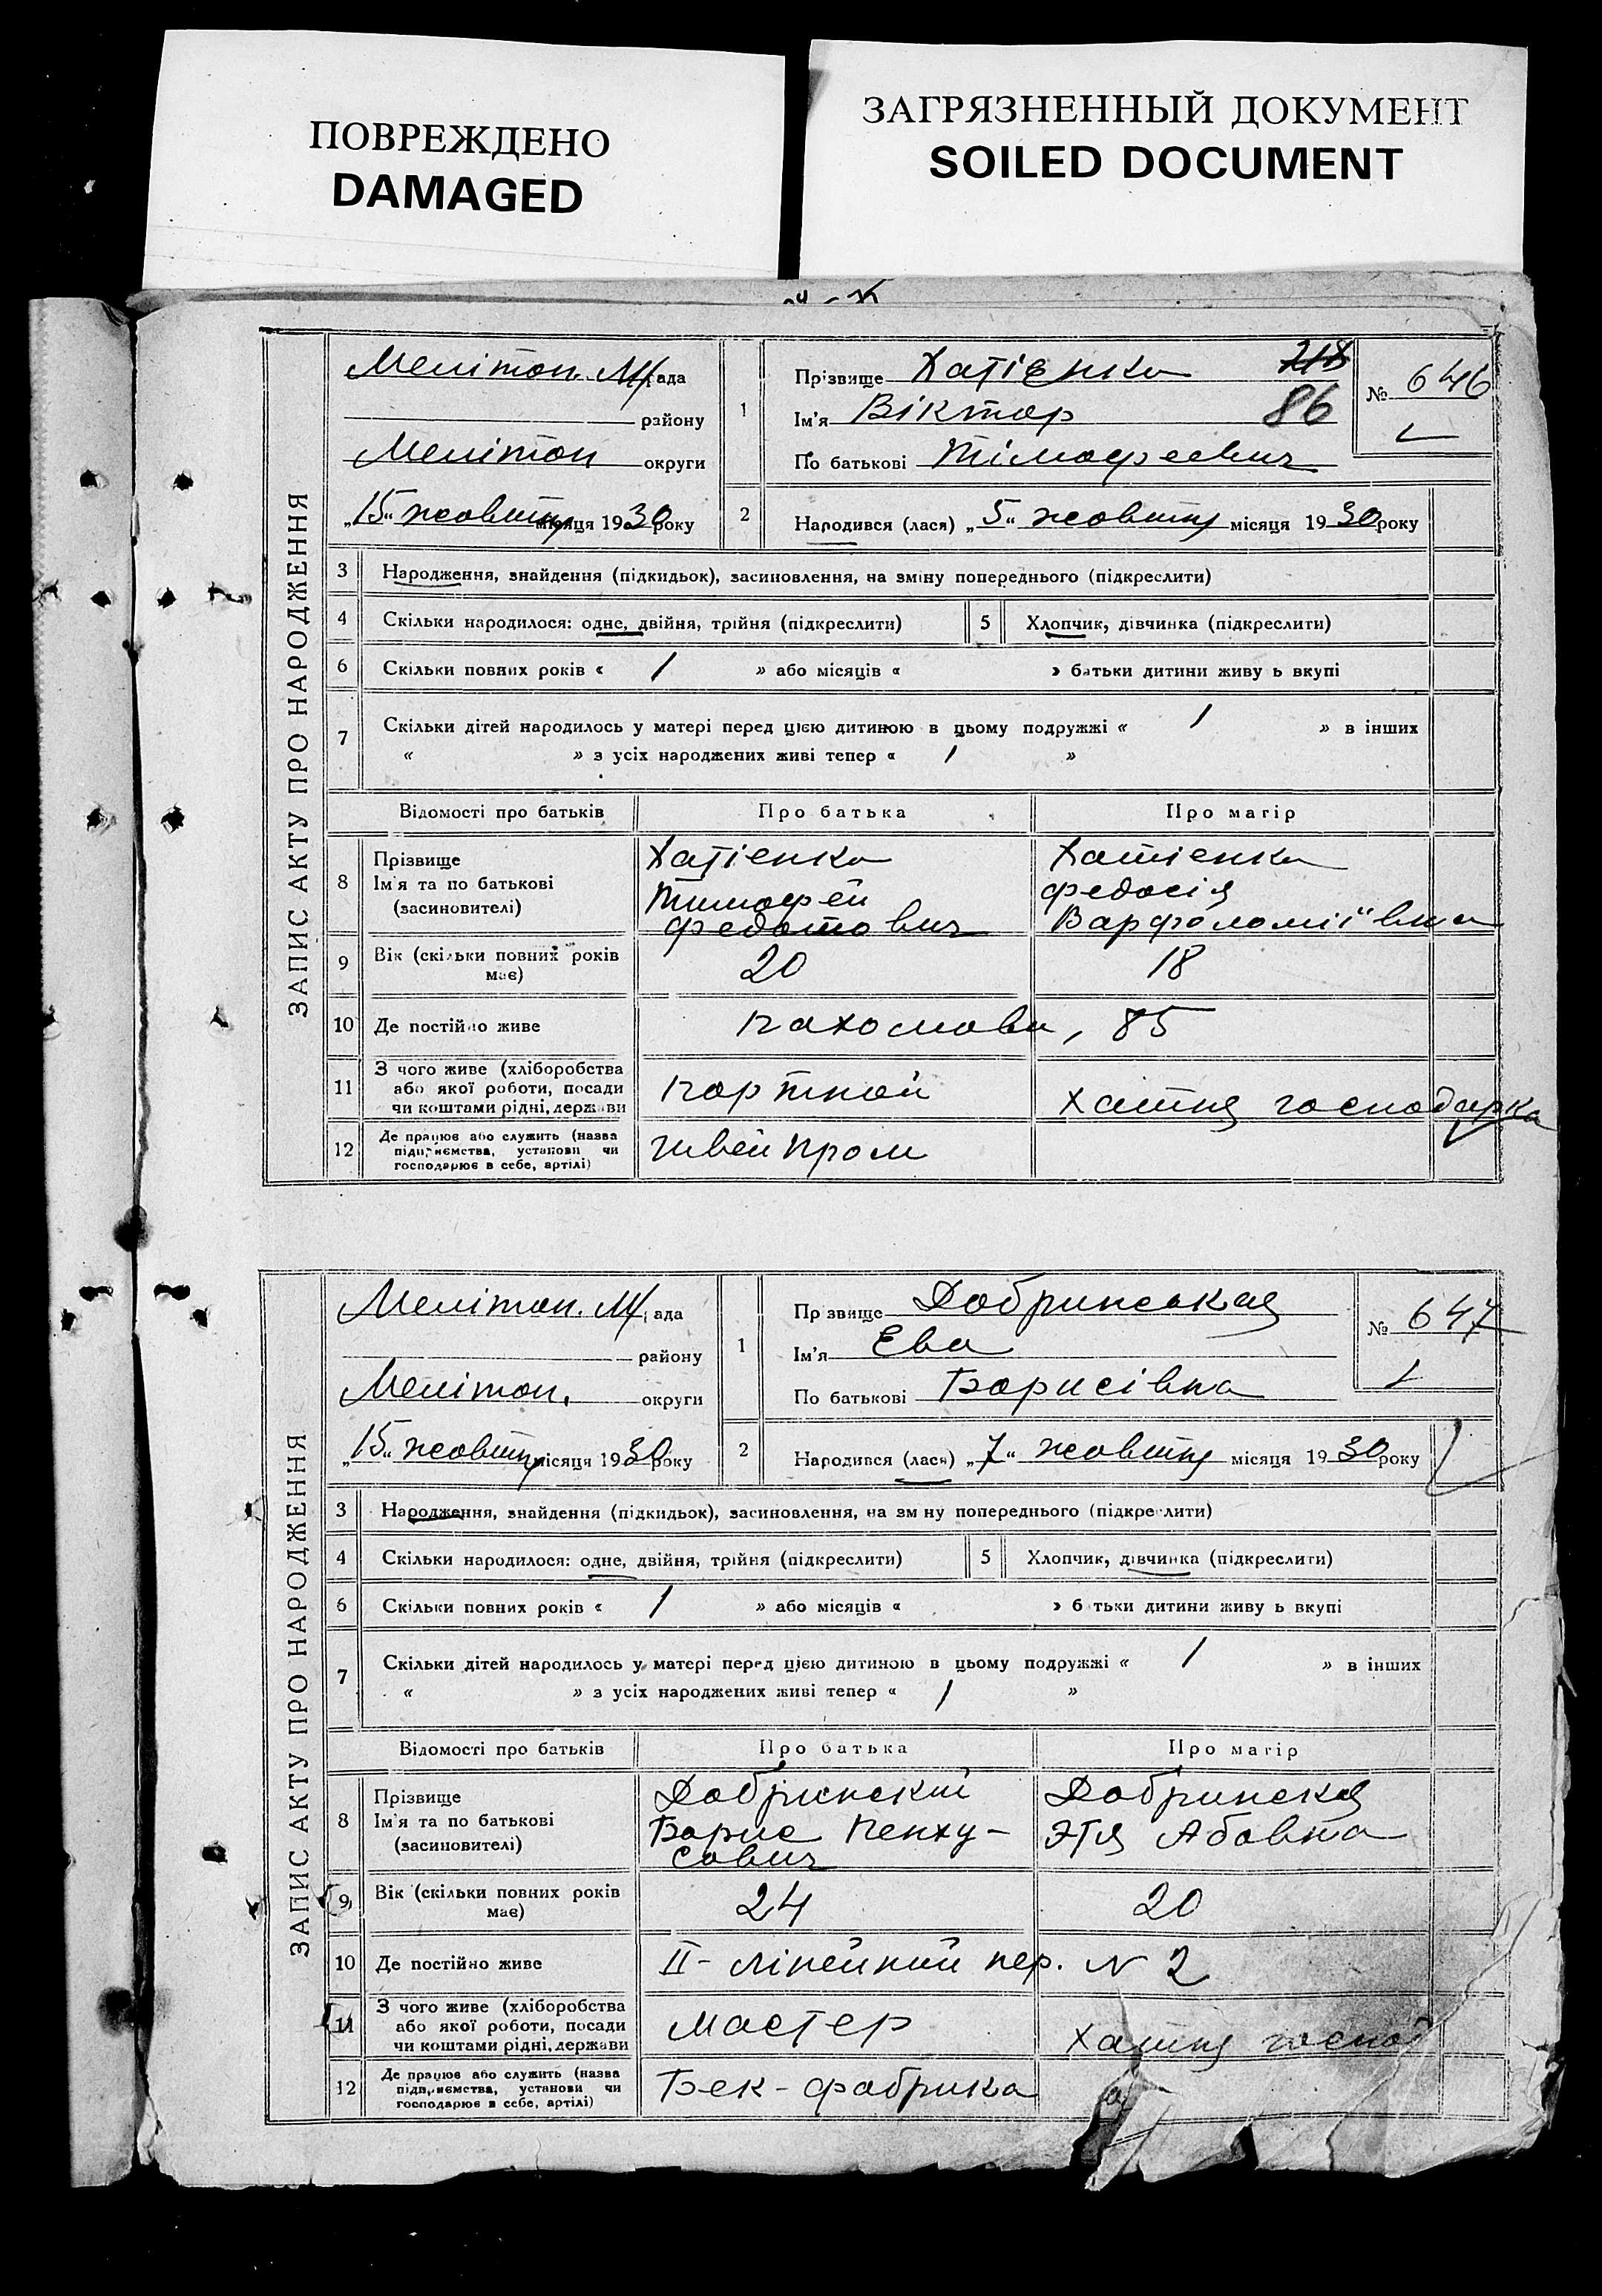 ПОВРЕЖДЕНО
DAMAGED
ЗАГРЯЗНЕННЫЙ ДОКУМЕНТ
SOILED DOCUMENT
ЗАПИС АКТУ ПРО НАРОДЖЕННЯ
Мелітоп. М/рада
району
Мелітоп округи
„15“ жовтня місяця 1930 року
1
Прізвище Хатієнко 218
Ім'я Віктор 86
По батькові Тімофеевич
№ 646
2 Народився (лася) „5“ жовтня місяця 1930 року
3 Народження, знайдення (підкидьок), засиновлення, на зміну попереднього (підкреслити)
4 Скільки народилося: одне, двійня, трійня (підкреслити) 5 Хлопчик, дівчинка (підкреслити)
6 Скільки повних років « 1 » або місяців « » батьки дитини живу ь вкупі
7 Скільки дітей народилось у матері перед цією дитиною в цьому подружжі « 1 » в інших
« » з усіх народжених живі тепер « 1 »
Відомості про батьків Про батька Про матір
8 Прізвище Ім'я та по батькові (засиновителі)
Хатіенко Тимофей Федотович
Хатіенко Федосія Варфоломіївна
9 Вік (скільки повних років має) 20 18
10 Де постійно живе Пахомова, 85
11 З чого живе (хліборобства або якої роботи, посади чи коштами рідні, держави портной Хатня господарка
12 Де працює або служить (назва підприємства, установи чи господарює в себе, артілі) швейпром
ЗАПИС АКТУ ПРО НАРОДЖЕННЯ
Мелітоп. М/рада
району
Мелітоп. округи
„15“ жовтня місяця 1930 року
1
Прізвище Добринськая
Ім'я Ева
По батькові Борисівна
№ 647
2 Народився (лася) „7“ жовтня місяця 1930 року
3 Народження, знайдення (підкидьок), засиновлення, на зміну попереднього (підкреслити)
4 Скільки народилося: одне, двійня, трійня (підкреслити) 5 Хлопчик, дівчинка (підкреслити)
6 Скільки повних років « 1 » або місяців « » б тьки дитини живу ь вкупі
7 Скільки дітей народилось у матері перед цією дитиною в цьому подружжі « 1 » в інших
« » з усіх народжених живі тепер « 1 »
Відомості про батьків Про батька Про матір
8 Прізвище Ім'я та по батькові (засиновителі)
Добринский Борис Пенхусович
Добринская Этя Абовна
9 Вік (скільки повних років має) 24 20
10 Де постійно живе II-Лінейний пер. N 2
11 З чого живе (хліборобства або якої роботи, посади чи коштами рідні, держави мастер Хатня господ
12 Де працює або служить (назва підприємства, установи чи господарює в себе, артілі) Бек-фабрика